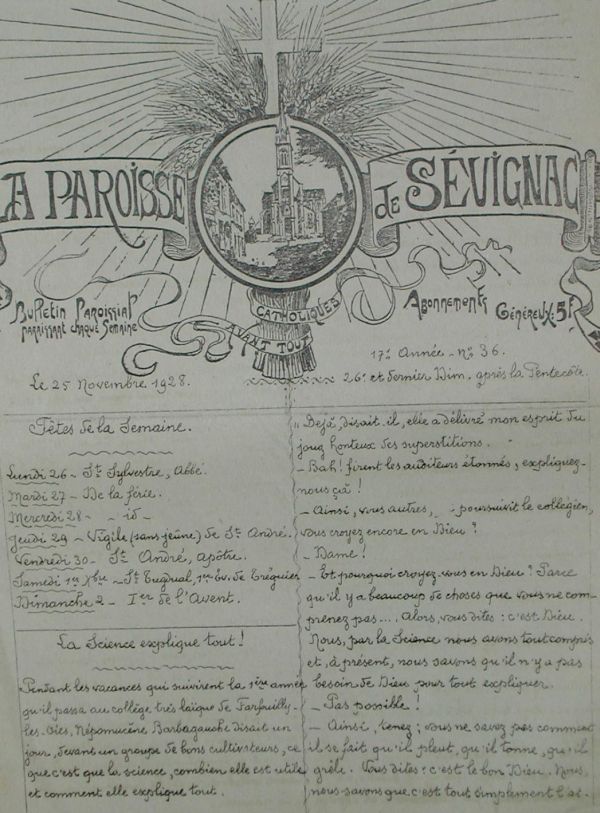 LA PAROISSE de SÉVIGNAC
Bulletin Paroissial
paraissant chaque Semaine
CATHOLIQUES
AVANT TOUT
Abonnements
Généreux: 5f
17e Année - No 36.
Le 25 Novembre 1928.
26e et dernier Dim. après la Pentecôte.
Fêtes de la Semaine.
Lundi 26 - St Sylvestre, Abbé.
Mardi 27 - De la férie.
Mercredi 28 - - id -
Jeudi 29 - Vigile (sans jeûne) de St André.
Vendredi 30 - St André, apôtre.
Samedi 1er Xbre - St Tugdual, 1er Ev. de Tréguier
Dimanche 2 - Ier de l'Avent.
La Science explique tout!
Pendant les vacances qui suivirent la 1ère année
qu'il passa au collège très laïque de Farfouilly-
les-Oies, Népomucène Barbagauche disait un
jour, devant un groupe de bons cultivateurs, ce
que c'est que la science, combien elle est utile
et comment elle explique tout.
"Déjà, disait-il, elle a délivré mon esprit du
joug honteux des superstitions.
- Bah! firent les auditeurs étonnés, expliquez-
nous çà!
- Ainsi, vous autres, poursuivit le collégien,
vous croyez encore en Dieu?
- Dame!
- Et pourquoi croyez-vous en Dieu? Parce
qu'il y a beaucoup de choses que vous ne com-
prenez pas.... Alors, vous dites: c'est Dieu.
Nous, par la Science nous avons tout compris
et, à présent, nous savons qu'il n'y a pas
besoin de Dieu pour tout expliquer.
- Pas possible!
- Ainsi, tenez; vous ne savez pas comment
il se fait qu'il pleut, qu'il tonne, qu'il
grêle. Vous dites: c'est le bon Dieu. Nous,
nous savons que c'est tout simplement l'at-